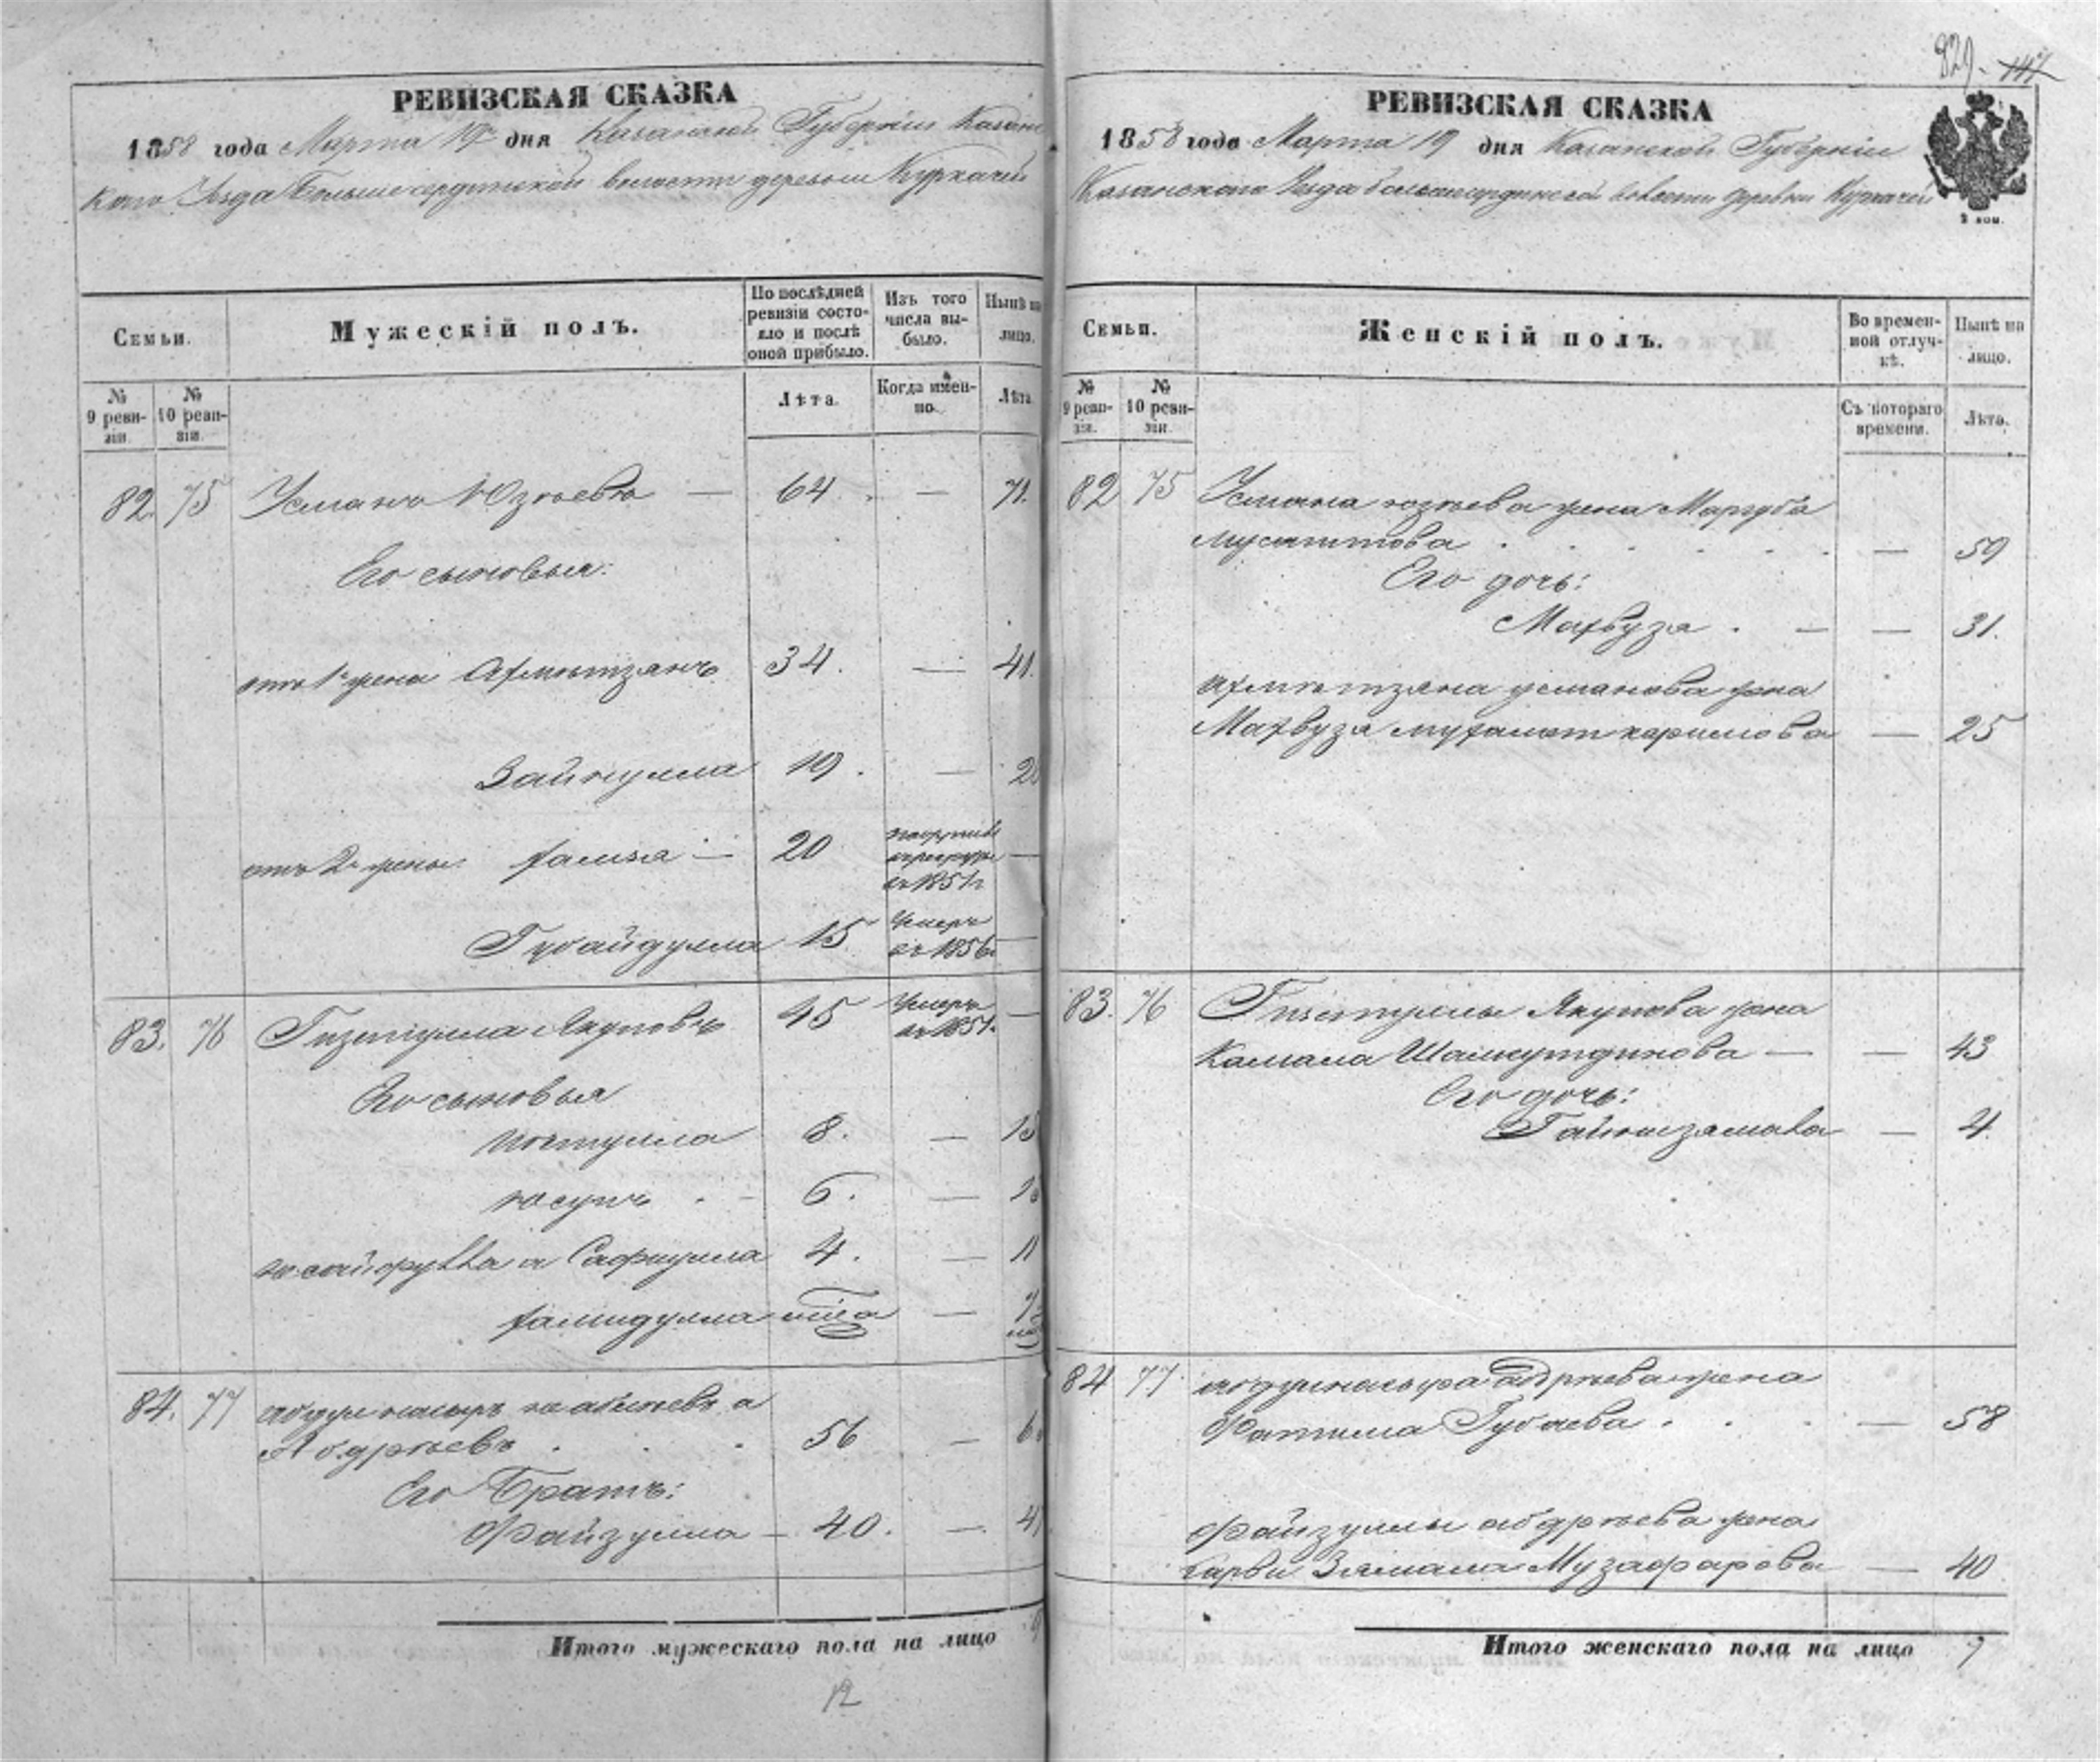 РЕВИЗСКАЯ СКАЗКА
1858 года Марта 19 дня Казанской Губернiи Казанс
каго Уѣзда Большесердинской волости деревни Куркачей
Семьи.
Мужескiй полъ.
По послѣдней ревизiи состояло и послѣ оной прибыло.
Изъ того числа выбыло.
Нынѣ на лицо.
№ 9 ревизiи.
№ 10 ревизiи.
Лѣта.
Когда именно.
Лѣта
82. 75 Усманъ Юзѣевъ — 64. — 71.
Его сыновья:
отъ 1й жены Ахметзянъ 34. — 41.
Зайнулла 19. —
отъ 2й жены — 20 въ 1851г —
Губайдулла 15 Умеръ въ 1856 —
83. 76 Гизетулла Якуповъ 45 Умеръ въ 1851. —
Его сыновья
8. — 15
юсупъ 6. —
Сафиулла 4. — 11
хамидулла —
84. 77 абдулнасыръ а
Абдрѣевъ 56 —
Его Братъ:
Файзулла — 40. —
Итого мужескаго пола на лицо
12
829. 117
РЕВИЗСКАЯ СКАЗКА
1858 года Марта 19 дня Казанской Губернiи
Казанскаго Уѣзда большесердинской волости деревни Куркачей
2 коп.
Семьи.
Женскiй полъ.
Во временной отлучкѣ.
Нынѣ на лицо.
№ 9 ревизiи.
№ 10 ревизiи.
Съ котораго времени.
Лѣта.
82 75 Усмана юзѣева жена Маргуба
— 59
Его дочь:
Махвуза — — 31.
Ахметзяна усманова жена
Махвуза мухаметкаримова — 25
83. 76 Гизетуллы Якупова жена
Камала Шамсутдинова — — 43
Его дочь:
— 4.
84 77 абдулнасыра абдрѣева жена
Фатима Губаева — 58
Файзуллы абдрѣева жена
Зямала Музафарова — 40
Итого женскаго пола на лицо 7